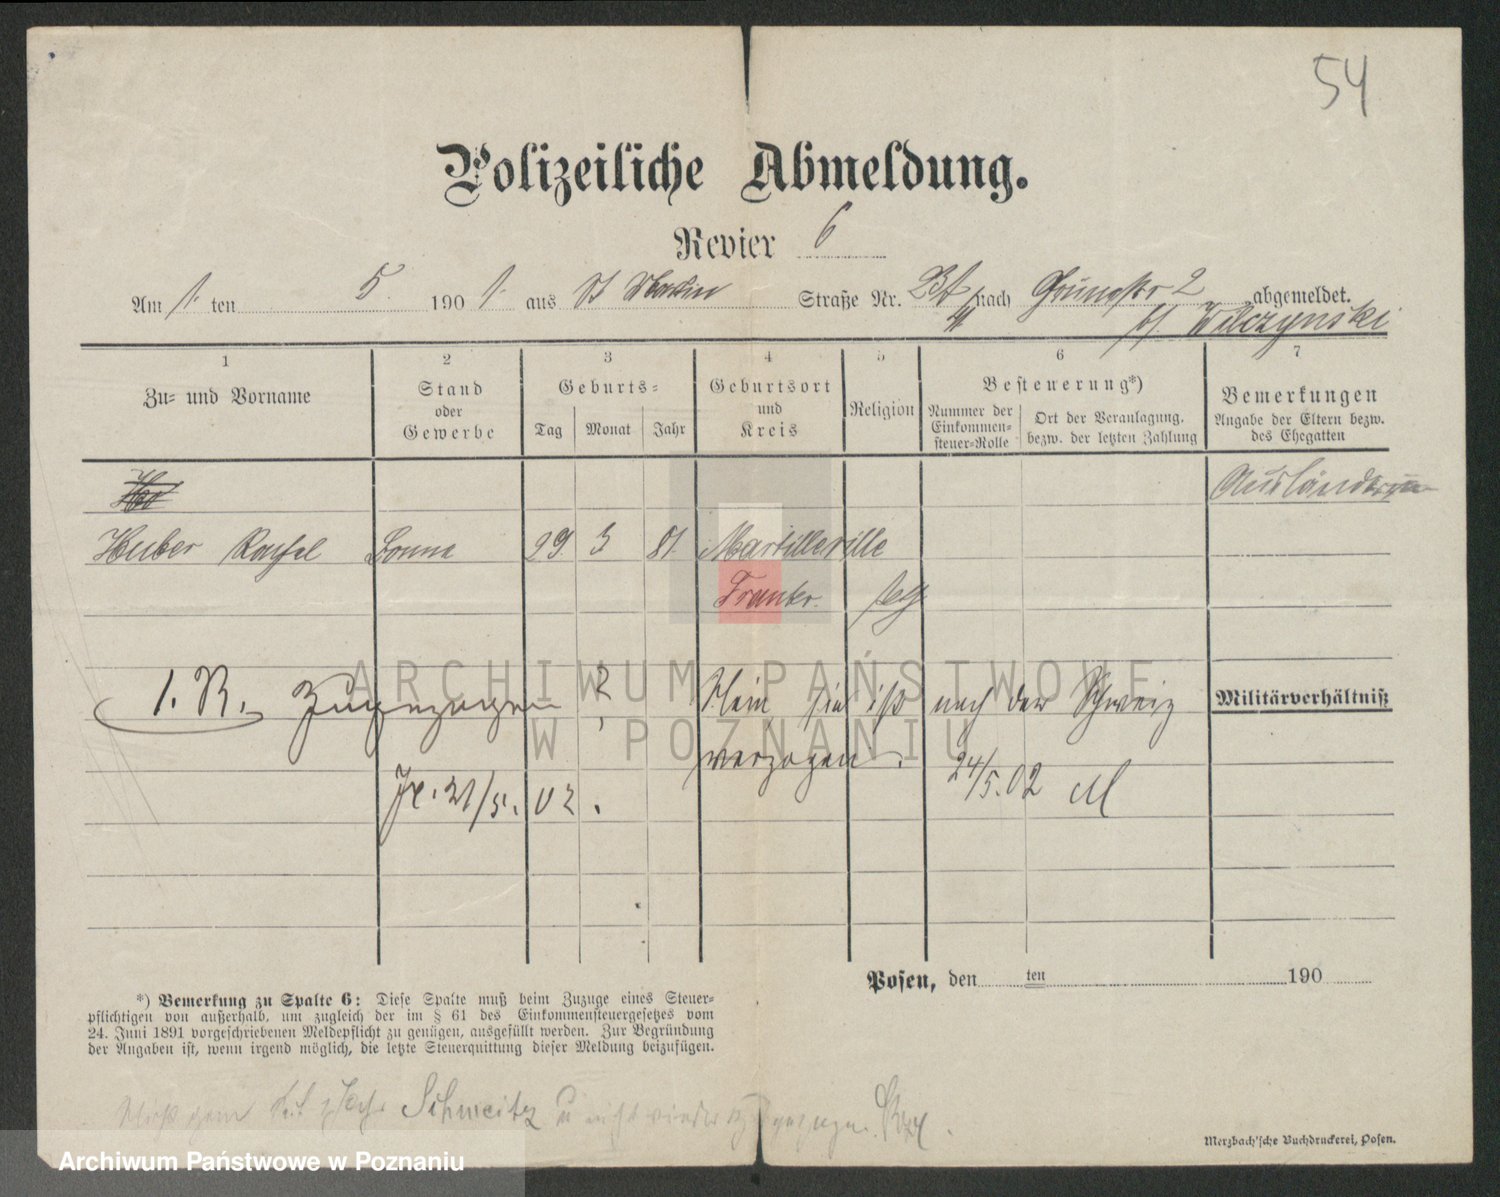 54
Polizeiliche Abmeldung.
Revier 6
Am 1. ten 5. 190 1. aus St Martin Straße Nr. nach Grünestr 2 abgemeldet.
b/ Wilczynski
1 2 3 4 5 6 7
Zu= und Vorname
Stand
oder
Gewerbe
Geburts=
Tag Monat Jahr
Geburtsort
und
Kreis
Religion
Besteuerung*)
Nummer der
Einkommen=
steuer=Rolle
Ort der Veranlagung,
bezw. der letzten Zahlung
Bemerkungen
Angabe der Eltern bezw.
des Ehegatten
Ausländerin
Huber Bonne 29. 3 81.
Frankr.
1. R. Zugezogen ? Nein sie ist nach der Schweiz
verzogen.
21/5. 02. 24/5. 02
Militärverhältniß
Posen, den ten 190
*) Bemerkung zu Spalte 6: Diese Spalte muß beim Zuzuge eines Steuer=
pflichtigen von außerhalb, um zugleich der im § 61 des Einkommensteuergesetzes vom
24. Juni 1891 vorgeschriebenen Meldepflicht zu genügen, ausgefüllt werden. Zur Begründung
der Angaben ist, wenn irgend möglich, die letzte Steuerquittung dieser Meldung beizufügen.
Schweitz u nicht wieder
Merzbach'sche Buchdruckerei, Posen.
ARCHIWUM PAŃSTWOWE
W POZNANIU
Archiwum Państwowe w Poznaniu